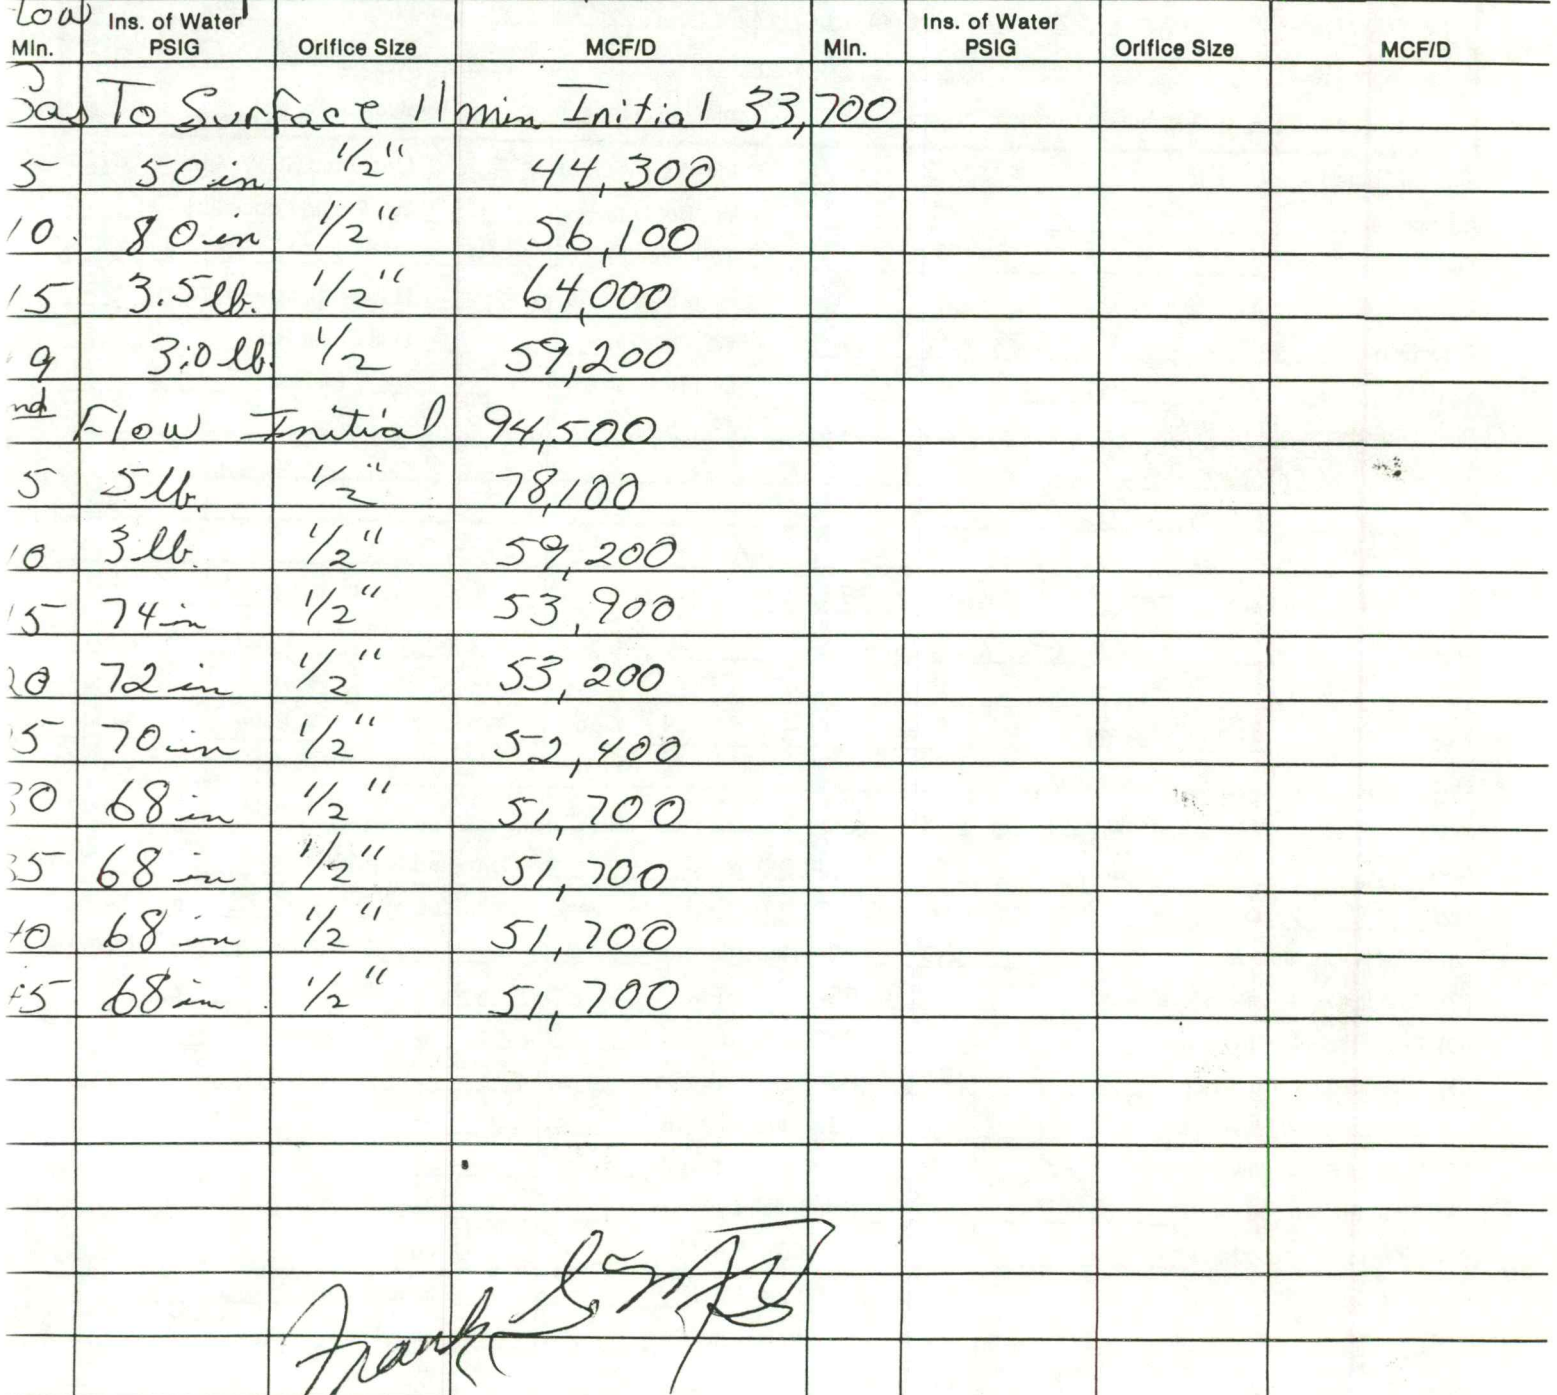 low Ins. of Water Ins. of Water
Min. PSIG Orifice Size MCF/D Min. PSIG Orifice Size MCF/D
Gas To Surface 11 min Initial 33,700
5 50 in 1/2" 44,300
10 80 in 1/2" 56,100
15 3.5 lb. 1/2" 64,000
9 3.0 lb. 1/2 59,200
nd Flow Initial 94,500
5 5 lb. 1/2" 78,100
10 3 lb. 1/2" 59,200
15 74 in 1/2" 53,900
20 72 in 1/2" 53,200
5 70 in 1/2" 52,400
30 68 in 1/2" 51,700
35 68 in 1/2" 51,700
40 68 in 1/2" 51,700
45 68 in 1/2" 51,700
Frank